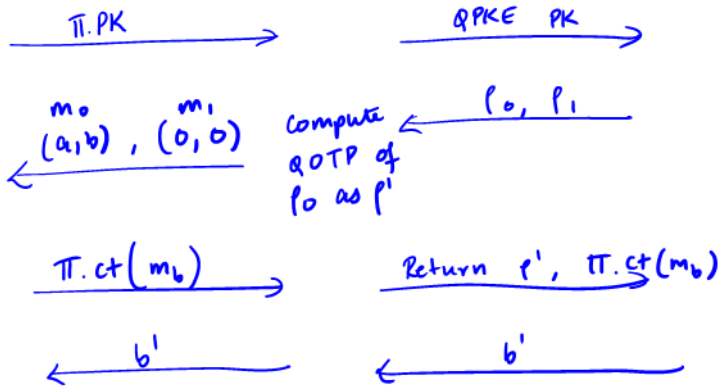 Π.PK
QPKE PK
m₀ m₁
(a,b) , (0,0)
compute
QOTP of
ρ₀ as ρ'
ρ₀, ρ₁
Π.ct(m_b)
Return ρ', Π.ct(m_b)
b'
b'